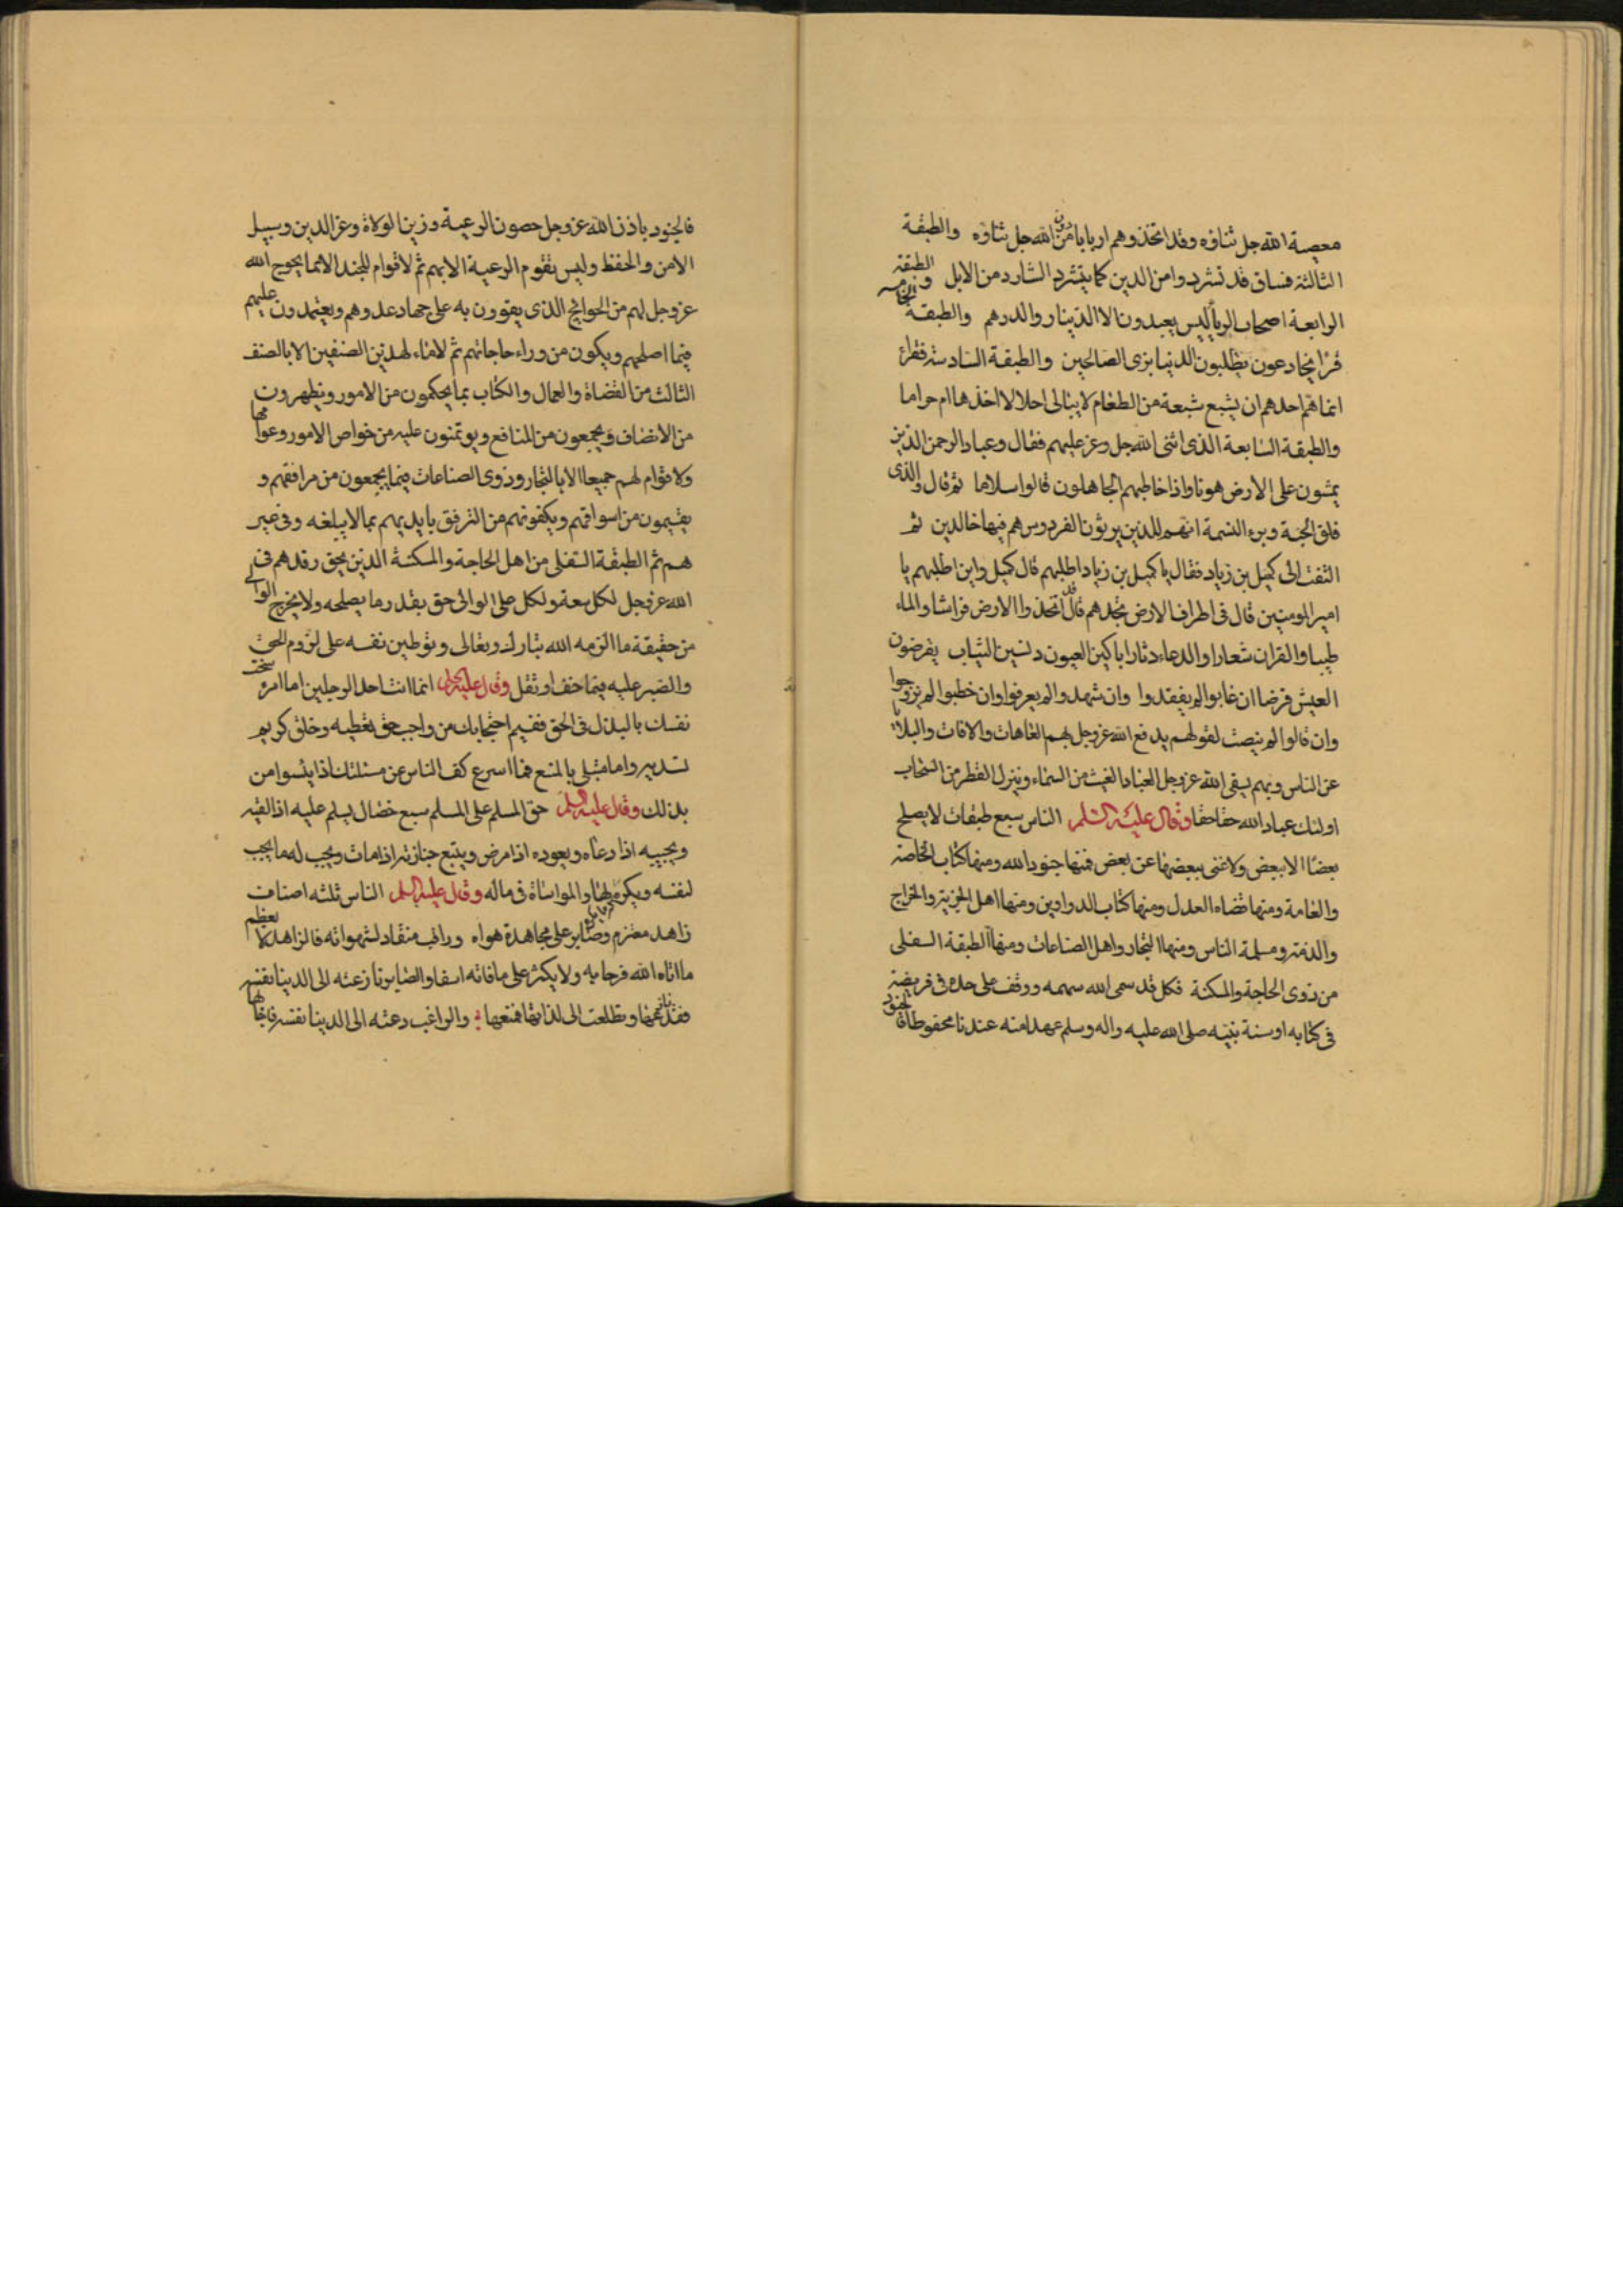 معصية الله جل ثناؤه وقد اتخذوهم اربابا من دون الله جل ثناؤه والطبقة
الثالثة فساق قد تشردوا من الدين كما يتشرد الشارد من الابل والطبقة
الرابعة اصحاب الربا ليس يعبدون الا الدينار والدرهم والطبقة الخامسة
قرا يخادعون يطلبون الدنيا بزى الصالحين والطبقة السادسة فقراء
انما هم احدهم ان يشبع شبعة من الطعام لا يبالى احلالا اخذها ام حراما
والطبقة السابعة الذى اثنى الله جل وعز عليهم فقال وعباد الرحمن الذين
يمشون على الارض هونا واذا خاطبهم الجاهلون قالوا سلاما ثم قال والذى
فلق الحبة وبرء النسمة انهم للذين يرثون الفردوس هم فيها خالدين ثم
التفت الى كميل بن زياد فقال يا كميل بن زياد اطلبهم قال كميل واين اطلبهم يا
امير المومنين قال فى اطراف الارض تجدهم قد اتخذوا الارض فراشا والماء
طيبا والقران شعارا والدعاء دثارا باكين العيون دنسين الثياب يقرضون
العيش قرضا ان غابوا لم يفقدوا وان شهدوا لم يعرفوا وان خطبوا لم يزوجوا
وان قالوا لم ينصت لقولهم يدفع الله عز وجل بهم العاهات والافات والبلايا
عن الناس وبهم يسقى الله عز وجل العباد الغيث من السماء وينزل القطر من السحاب
اولئك عباد الله حقا حقا وقال عليه السلم الناس سبع طبقات لا يصلح
بعضا الا ببعض ولا غنى ببعضها عن بعض فمنها جنود الله ومنها كتاب الخاصة
والعامة ومنها قضاه العدل ومنها كتاب الدواوين ومنها اهل الجزية والخراج
والذمة ومسلمة الناس ومنها التجار واهل الصناعات ومنها الطبقة السفلى
من ذوى الحاجة والمسكنة فكل قد سمى الله سهمه ووقف على حده فى فريضة
فى كتابه او سنة نبيه صلى الله عليه واله وسلم عهدا منه عندنا محفوظا فالجنود
فالجنود باذن الله عز وجل حصون الرعية وزين الولاة وعز الدين وسبيل
الامن والحفظ وليس تقوم الرعية الا بهم ثم لا قوام للجند الا بما يحوج الله
عز وجل لهم من الحوائج الذى يقوون به على جهاد عدوهم ويعتمدون عليهم
فيما اصلحهم ويكون من وراء حاجاتهم ثم لا بقاء لهذين الصنفين الا بالصنف
الثالث من القضاة والعمال والكتاب بما يحكمون من الامور ويظهرون
من الانصاف ويجمعون من المنافع ويوتمنون عليه من خواص الامور وعوامها
ولا قوام لهم جميعا الا بالتجار وذوى الصناعات فيما يجمعون من مرافقهم و
يقيمون من اسواقهم ويكفونهم من الترفق بايديهم بما لا يبلغه وفى غير
هم ثم الطبقة السفلى من اهل الحاجة والمسكنة الذين يحق رفدهم فى
الله عز وجل لكل سعة ولكل على الوالى حق بقدر ما يصلحه ولا يخرج الوالى
من حقيقة ما الزمه الله تبارك وتعالى وتوطين نفسه على لزوم الحق
والصبر عليه فيما خف او ثقل وقال عليه السلم انما انت احد الرجلين اما امرؤ سخت
نفسك بالبذل فى الحق ففيم احتجابك من واجب حق تعطيه وخلق كريم
تسديه واما مبتلى بالمنع فما اسرع كف الناس عن مسئلتك اذا يئسوا من
بذلك وقال عليه السلم حق المسلم على المسلم سبع خصال يسلم عليه اذا لقيه
ويجيبه اذا دعاه ويعوده اذا مرض ويتبع جنازته اذا مات ويحب له ما يحب
لنفسه ويكره لها والمواساة فى ماله وقال عليه السلم الناس ثلثه اصناف
زاهد معتزم وصابر على مجاهدة هواه وراغب منقاد لشهواته فالزاهد لا يعظم
ما اتاه الله فرحا به ولا يكثر على ما فاته اسفا والصابر نازعته الى الدنيا نفسه
فقدعها وتطلعت الى لذاتها فمنعها والراغب دعته الى الدنيا نفسه فاجابها